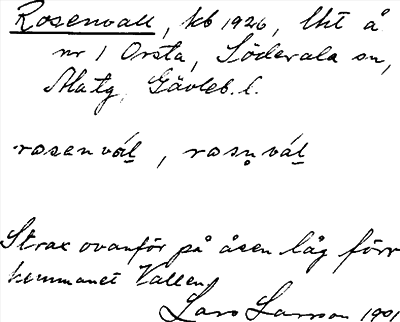 Rosenvall, kb 1926, lht å
nr 1 Orsta, Söderala sn,
Matg, Gävleb. l.
rosenvál, rosn̥vál
Strax ovanför på åsen låg förr
hemmanet Vallen
Lars Larsson 1901